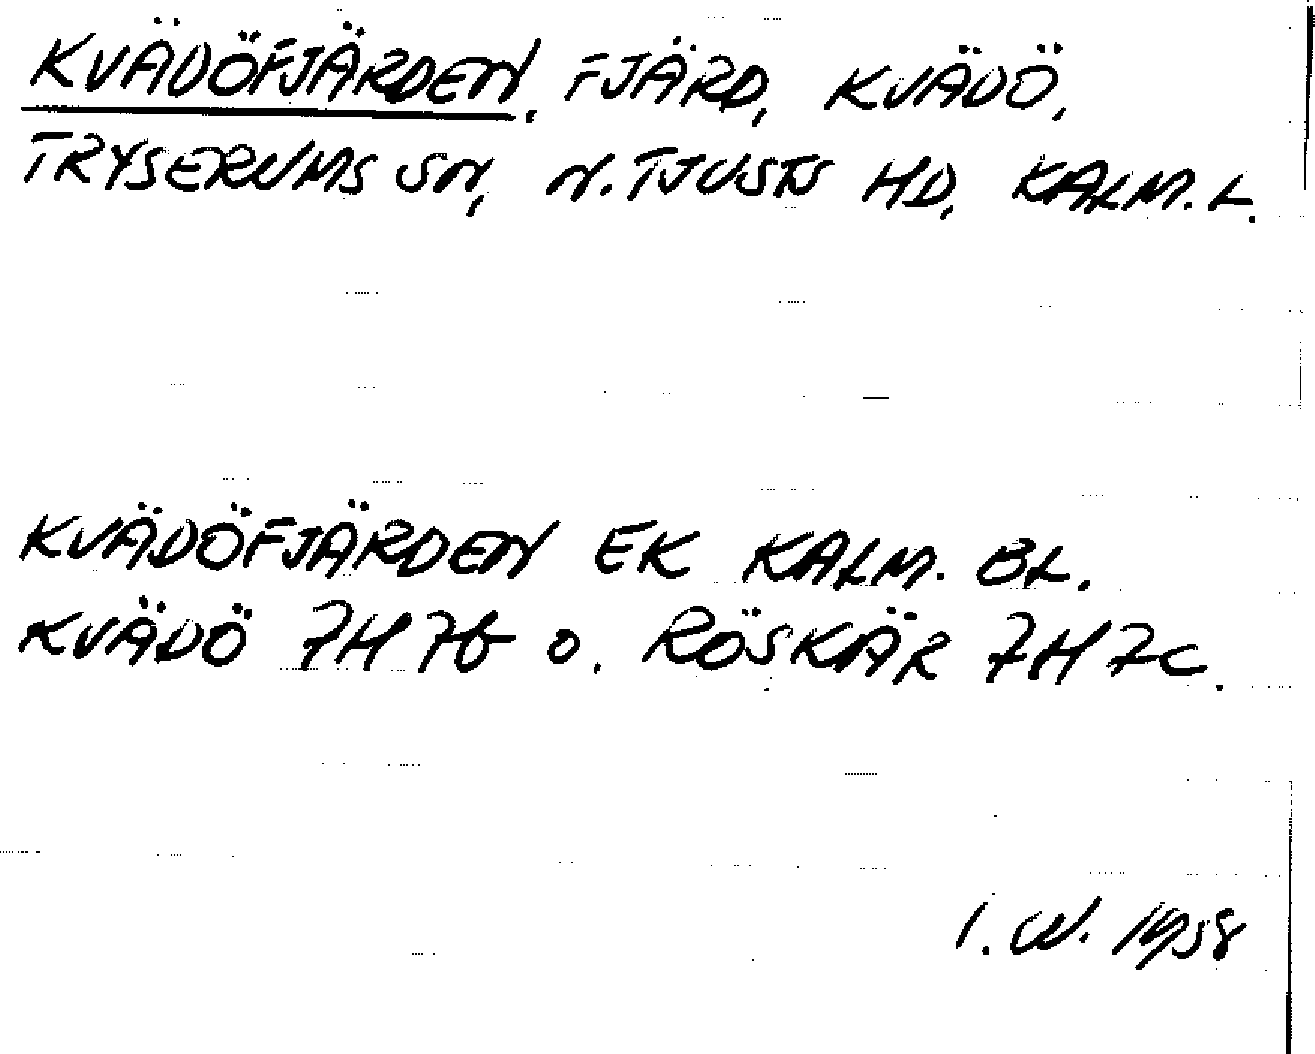 KVÄDÖFJÄRDEN. FJÄRD, KVÄDÖ,
TRYSERUMS SN, N. TJUSTS HD, KALM. L.
KVÄDÖFJÄRDEN EK KALM. BL.
KVÄDÖ 7H 7b o. RÖSKÄR 7H 7c.
I. W. 1958